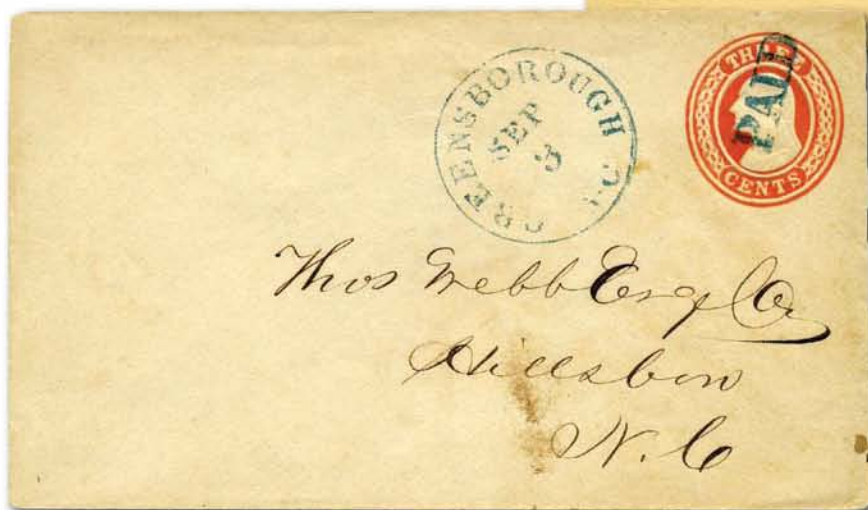 GREENSBOROUGH N.C.
SEP
3
THREE
CENTS
PAID
Thos Webb Esq
Hillsboro
N.C